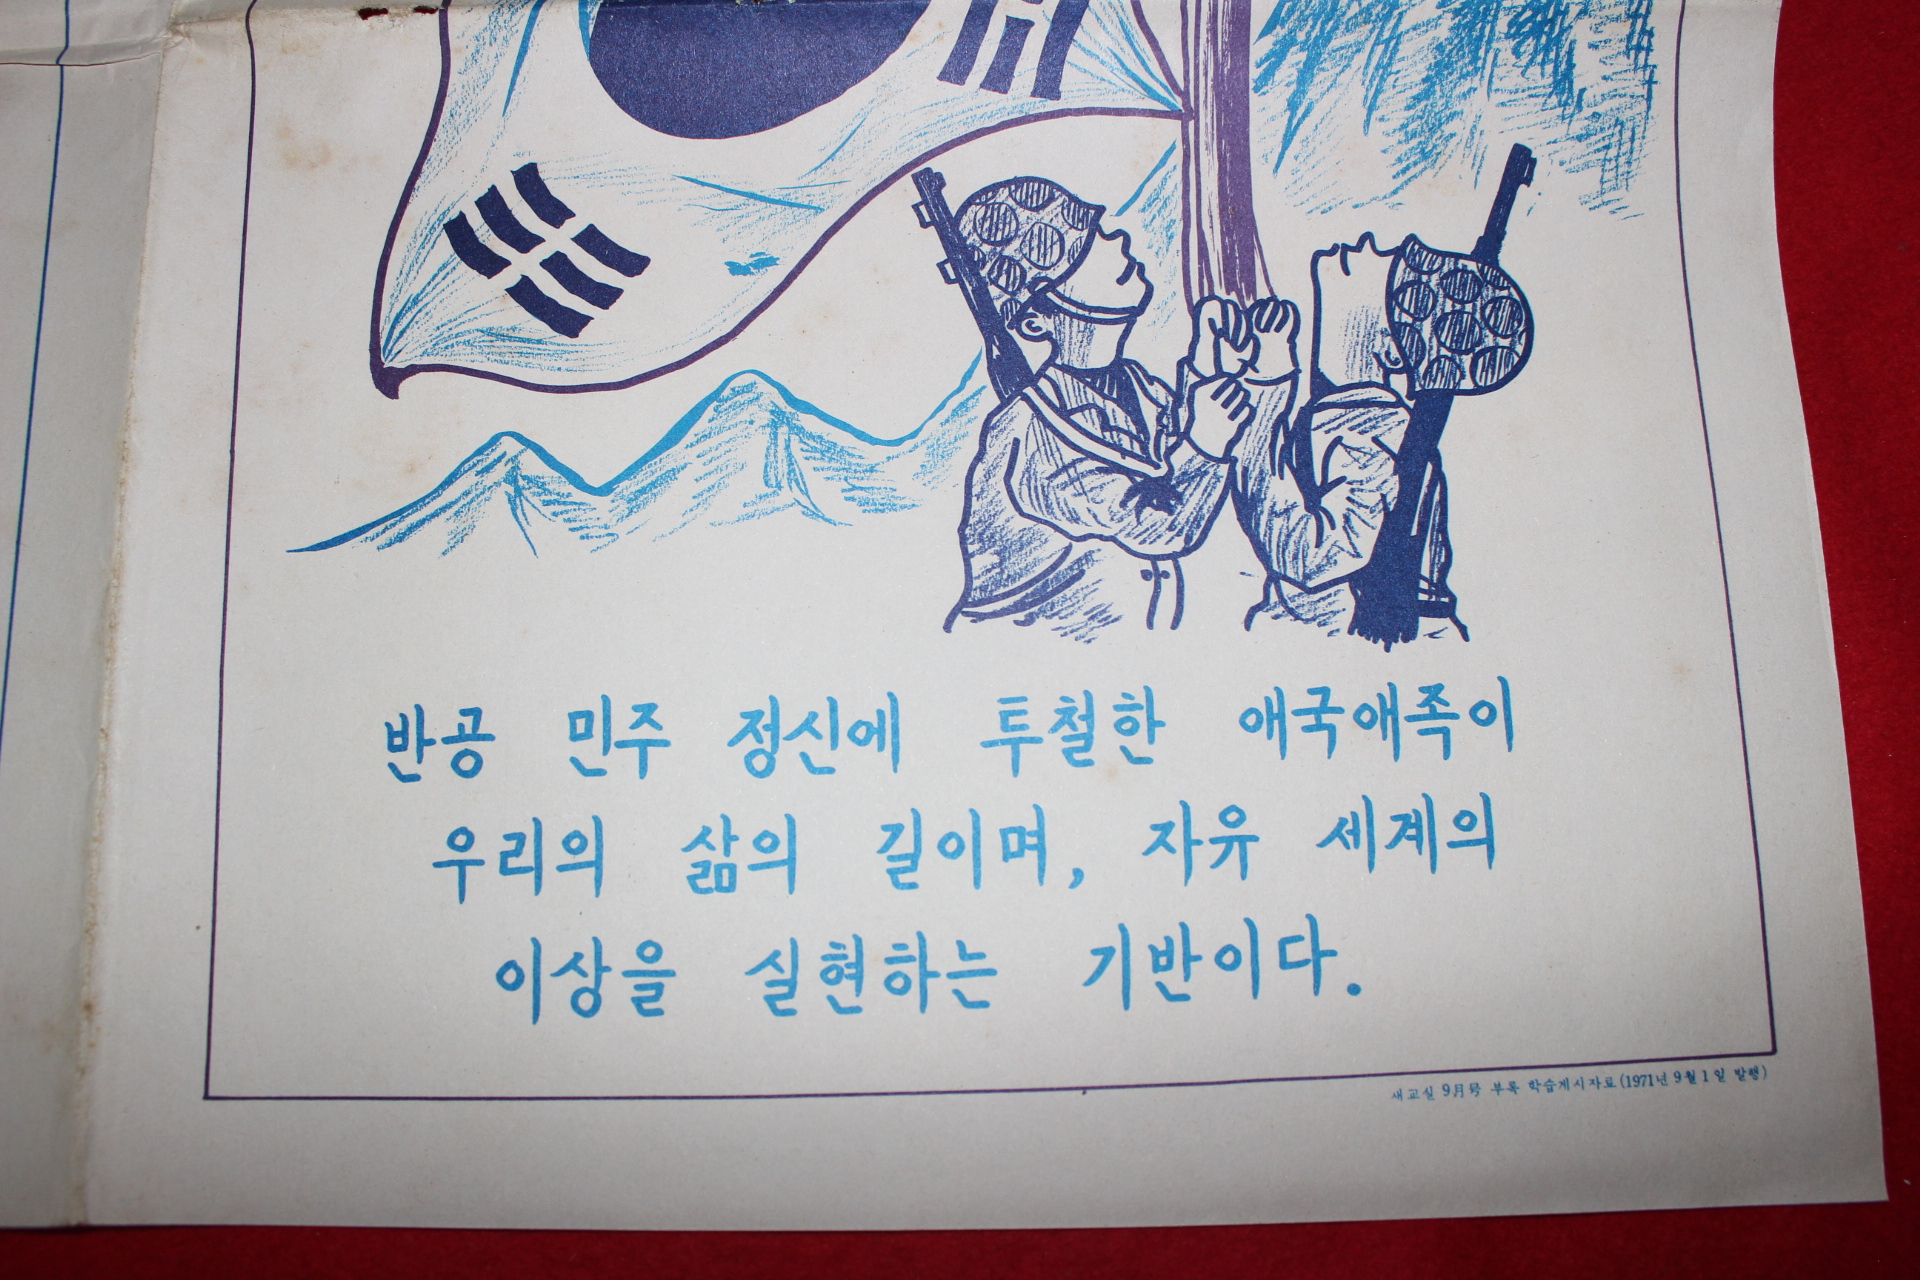 반공 민주 정신에 투철한 애국애족이
우리의 삶의 길이며, 자유 세계의
이상을 실현하는 기반이다.
새교실 9月号 부록 학습게시자료 (1971년 9월 1일 발행)